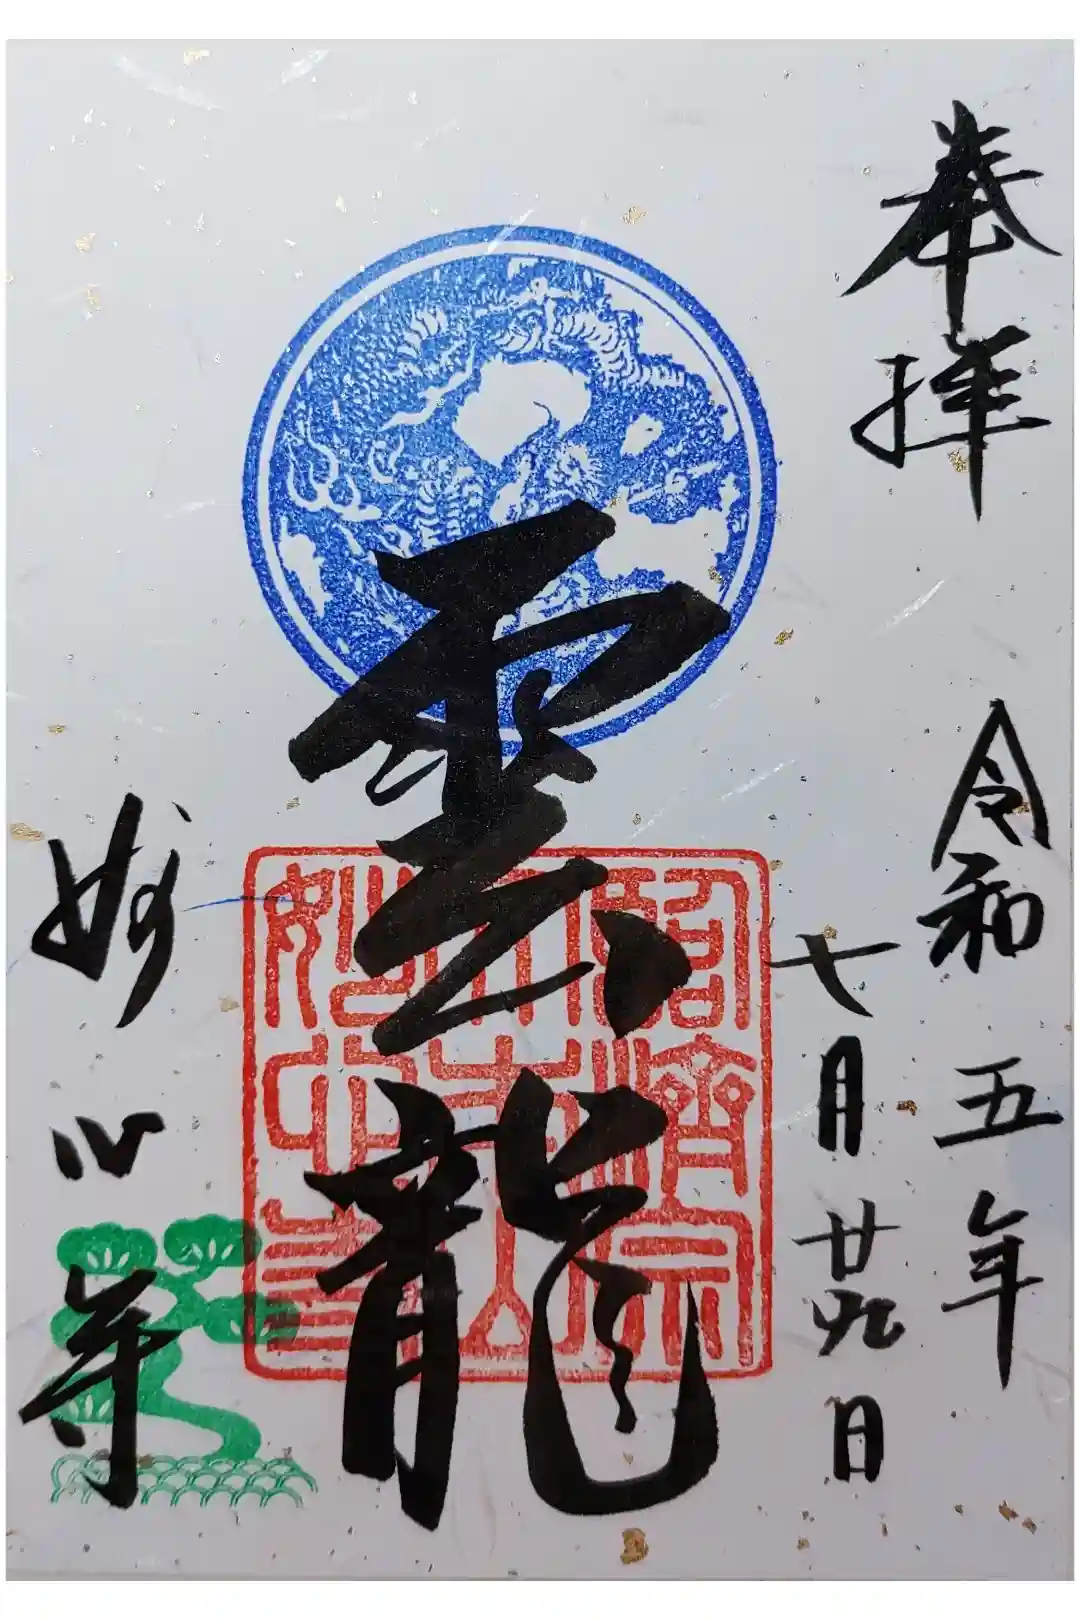 奉拝
令和五年
七月廿九日
雲龍
臨済宗
大本山
妙心寺
妙心寺